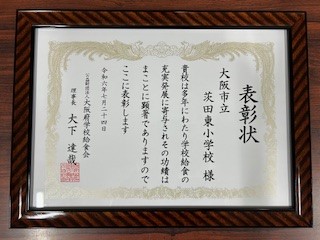 表彰状
大阪市立
茨田東小学校 様
貴校は多年にわたり学校給食の
充実発展に寄与されその功績は
まことに顕著でありますので
ここに表彰します
令和六年七月二十四日
公益財団法人大阪府学校給食会
理事長 大下 達哉